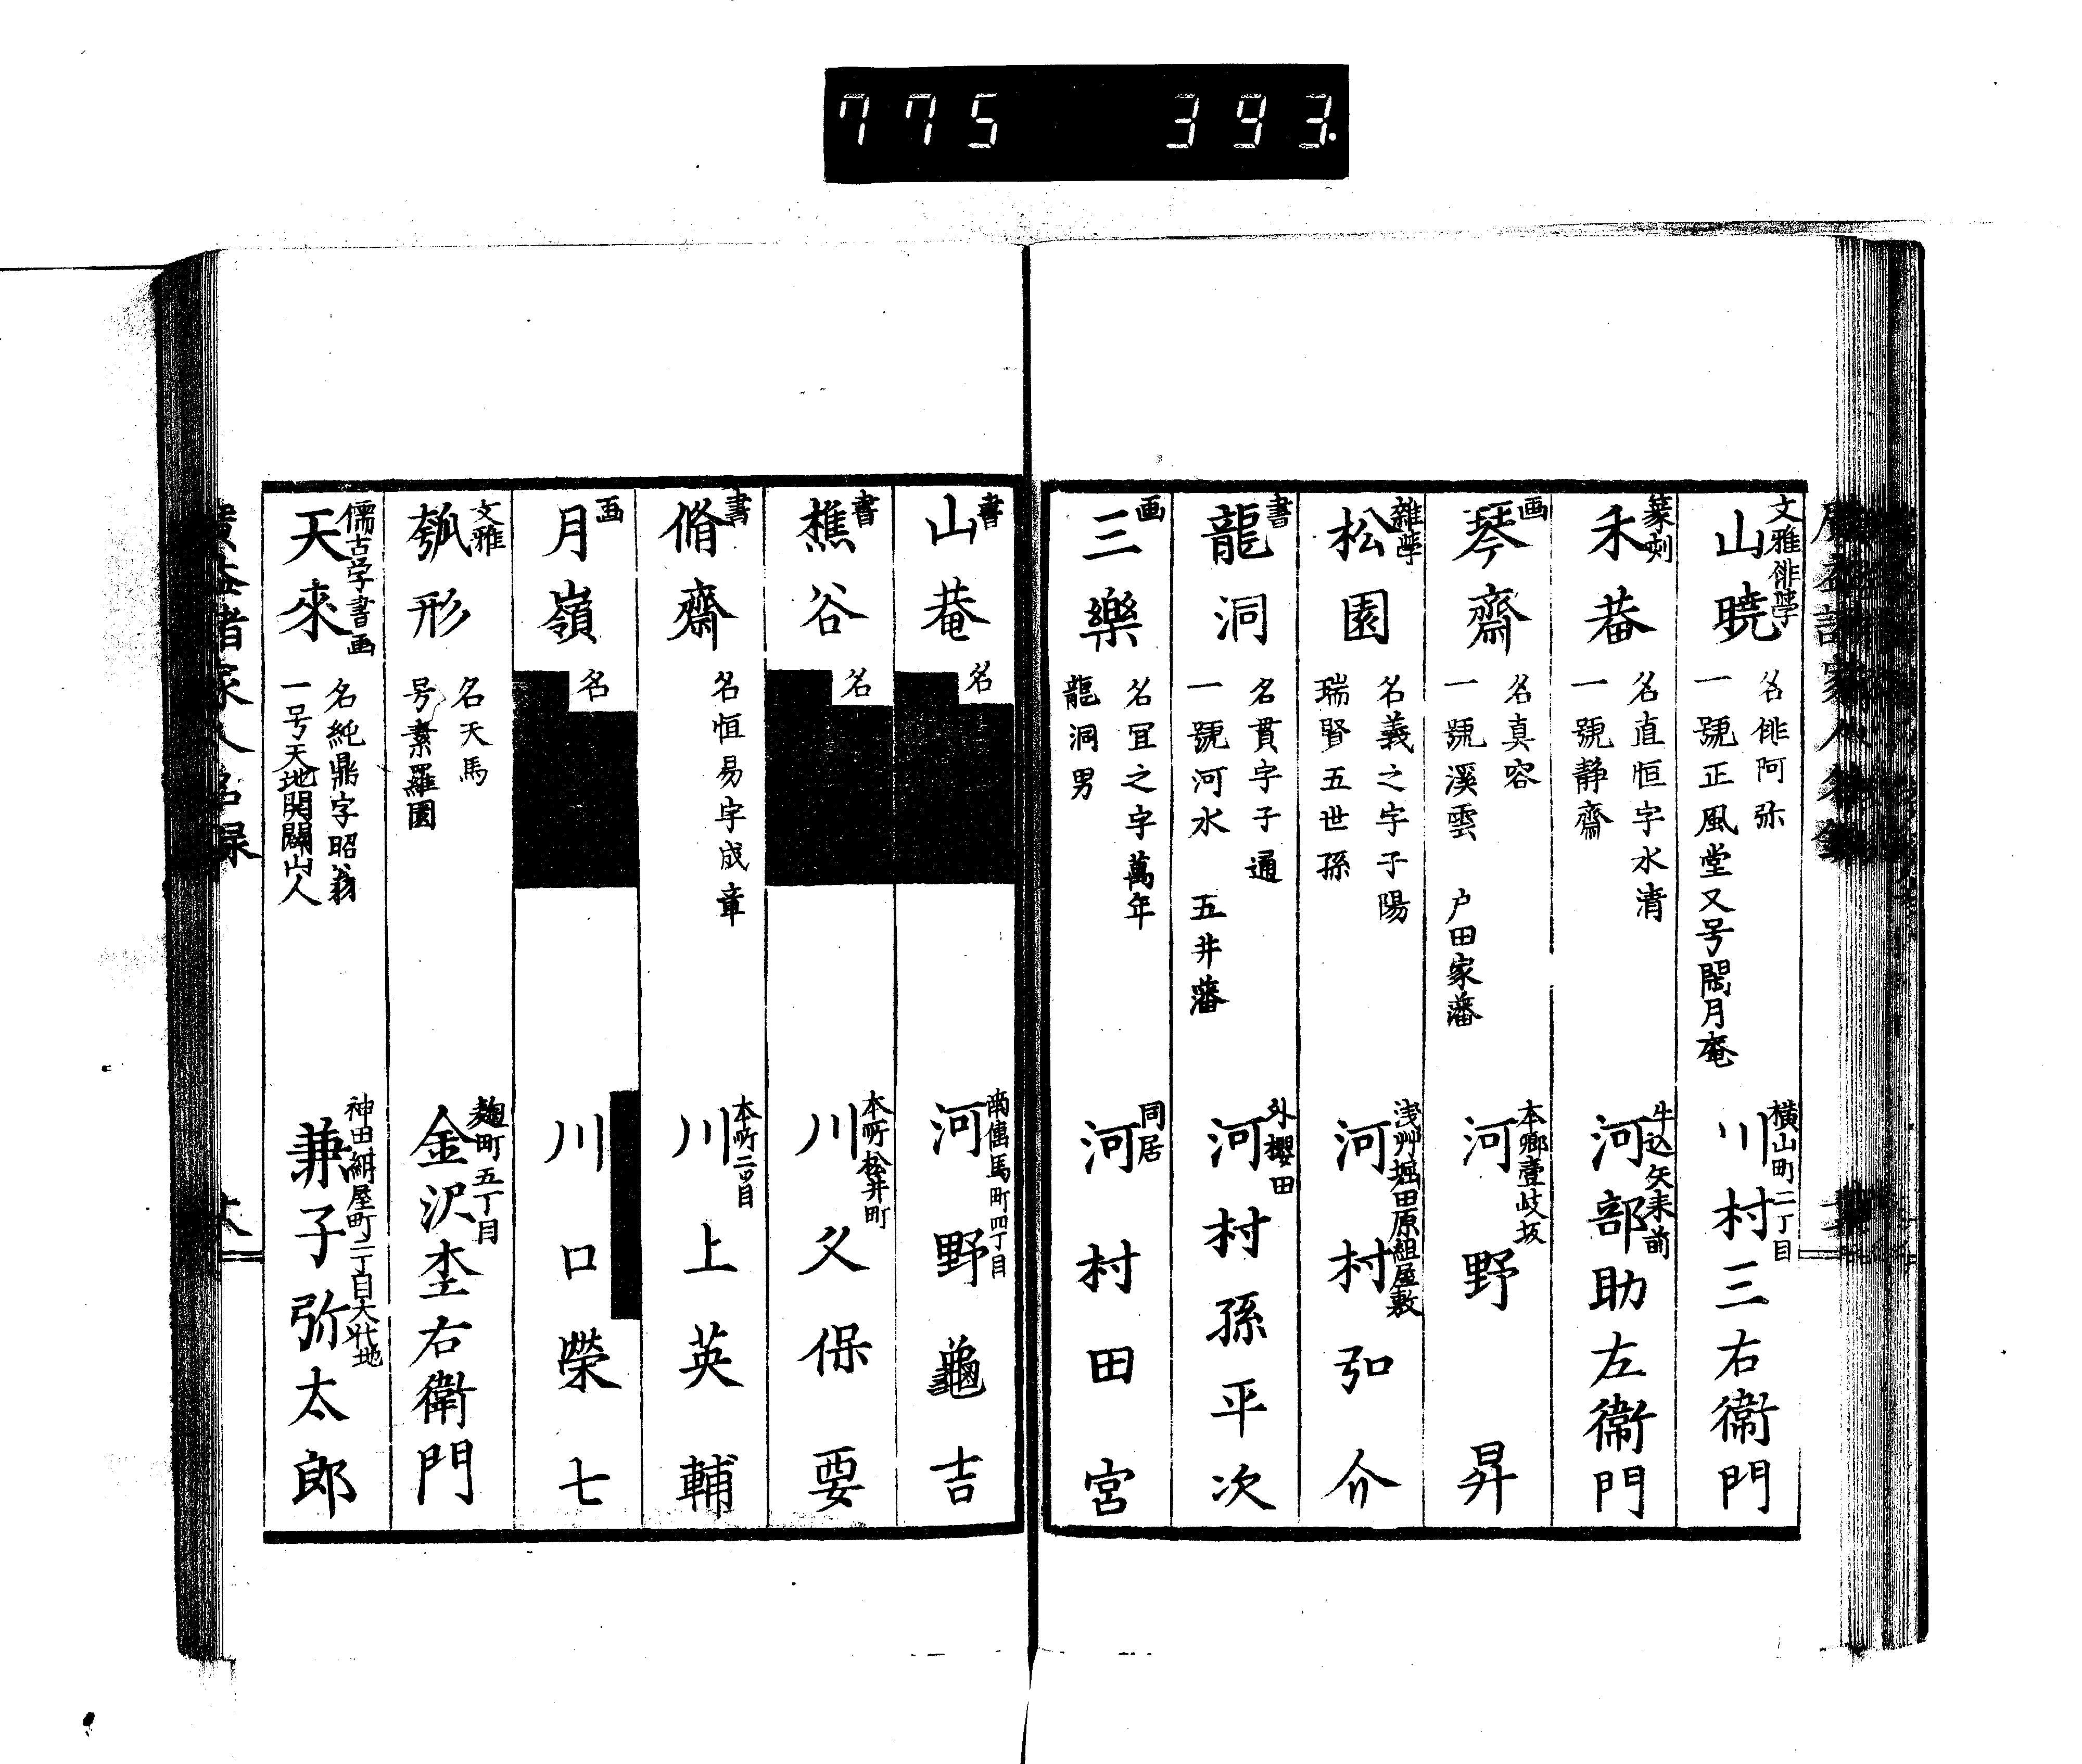 775 393.
文雅俳諧
山暁
名俳阿弥
一號正風堂又号閑月庵
横山町二丁目
川村三右衛門
篆刻
禾菴
名直恒字水清
一號静齋
牛込矢来前
河部助左衛門
画
琴齋
名真容
一號溪雲 戸田家藩
本郷壹岐坂
河野昇
雑学
松園
名義之字子陽
瑞賢五世孫
浅艸堀田原組屋敷
河村弘介
書
龍洞
名貫字子通
一號河水 五井藩
外櫻田
河村孫平次
画
三樂
名宜之字萬年
龍洞男
同居
河村田宮
書
山菴
名
南傳馬町四丁目
河野龜吉
書
樵谷
名
本所松井町
川久保要
書
脩齋
名恒易字成章
本所二ツ目
川上英輔
画
月嶺
名
川口榮七
文雅
瓠形
名天馬
号素羅園
麹町五丁目
金沢杢右衛門
儒古学書画
天來
名純鼎字昭翁
一号天地開闢山人
神田紺屋町二丁目大代地
兼子弥太郎
廣益諸家人名録